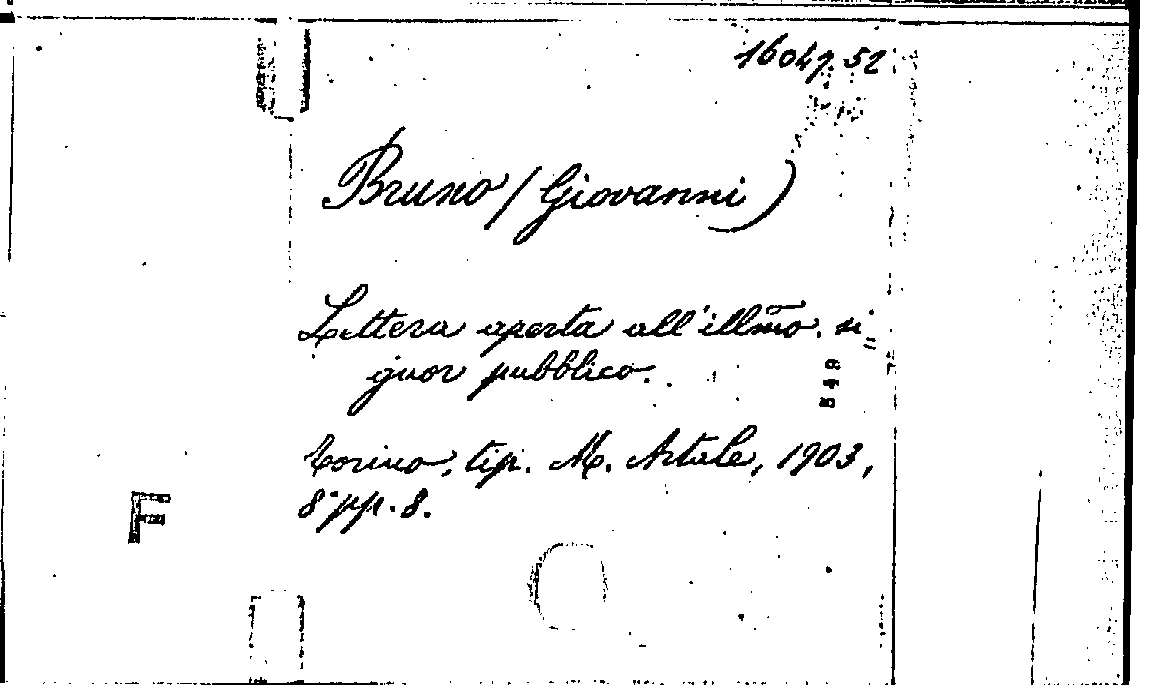 16047.52
Bruno (Giovanni)
Lettera aperta all'illm̃o. si=
gnor pubblico.
549
Torino, tip. M. Artale, 1903,
8° pp. 8.
F